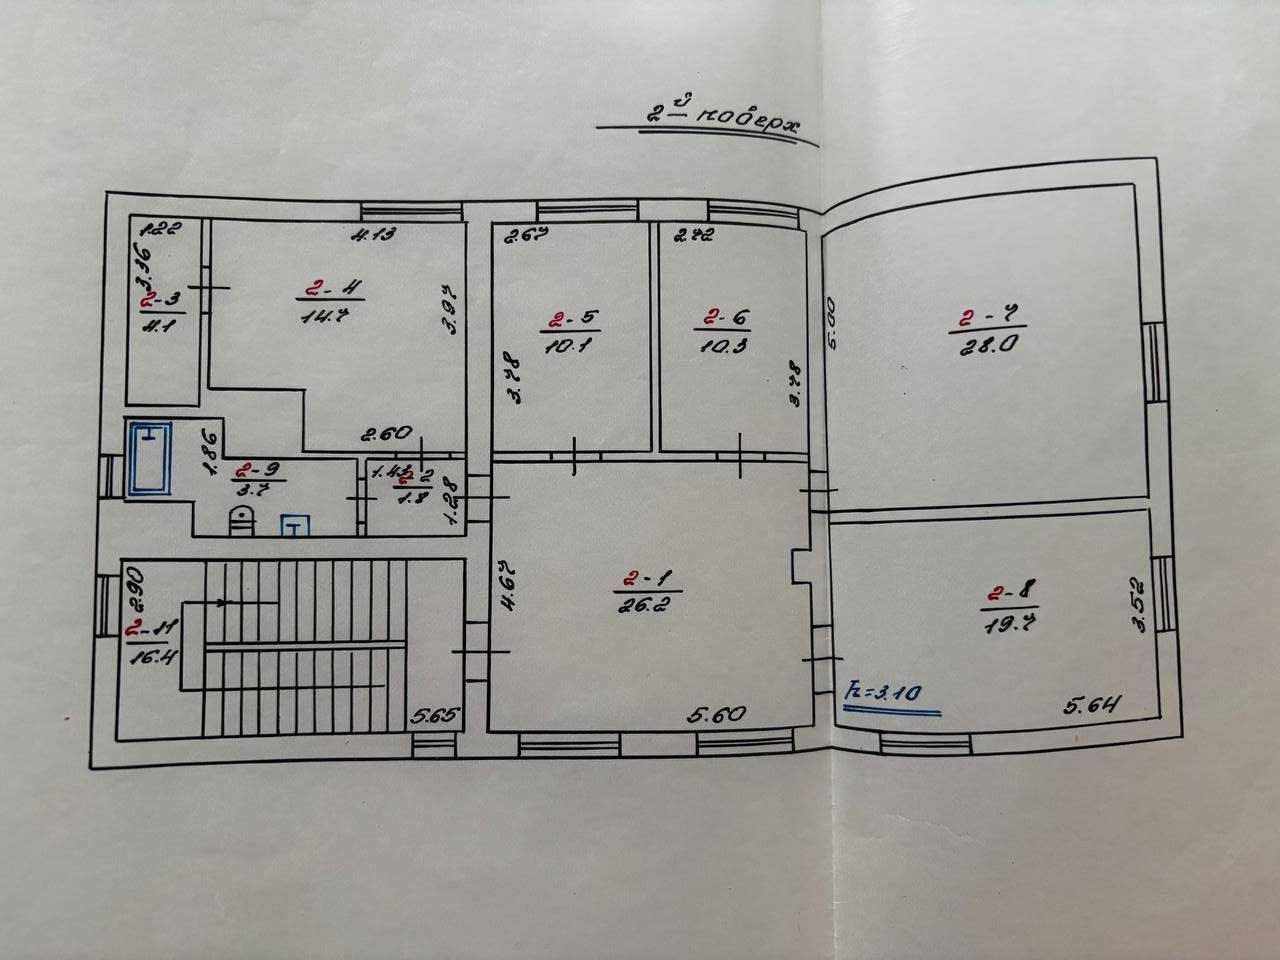 2й поверх
1.22
3.36
2-3
4.1
4.13
2-4
14.7
3.97
2.60
2.67
2-5
10.1
3.78
2.72
2-6
10.3
3.78
5.00
2-7
28.0
1.86
2-9
3.7
1.43
2-2
1.8
1.28
2.90
2-11
16.4
5.65
4.67
2-1
26.2
5.60
2-8
19.7
3.52
h=3.10
5.64